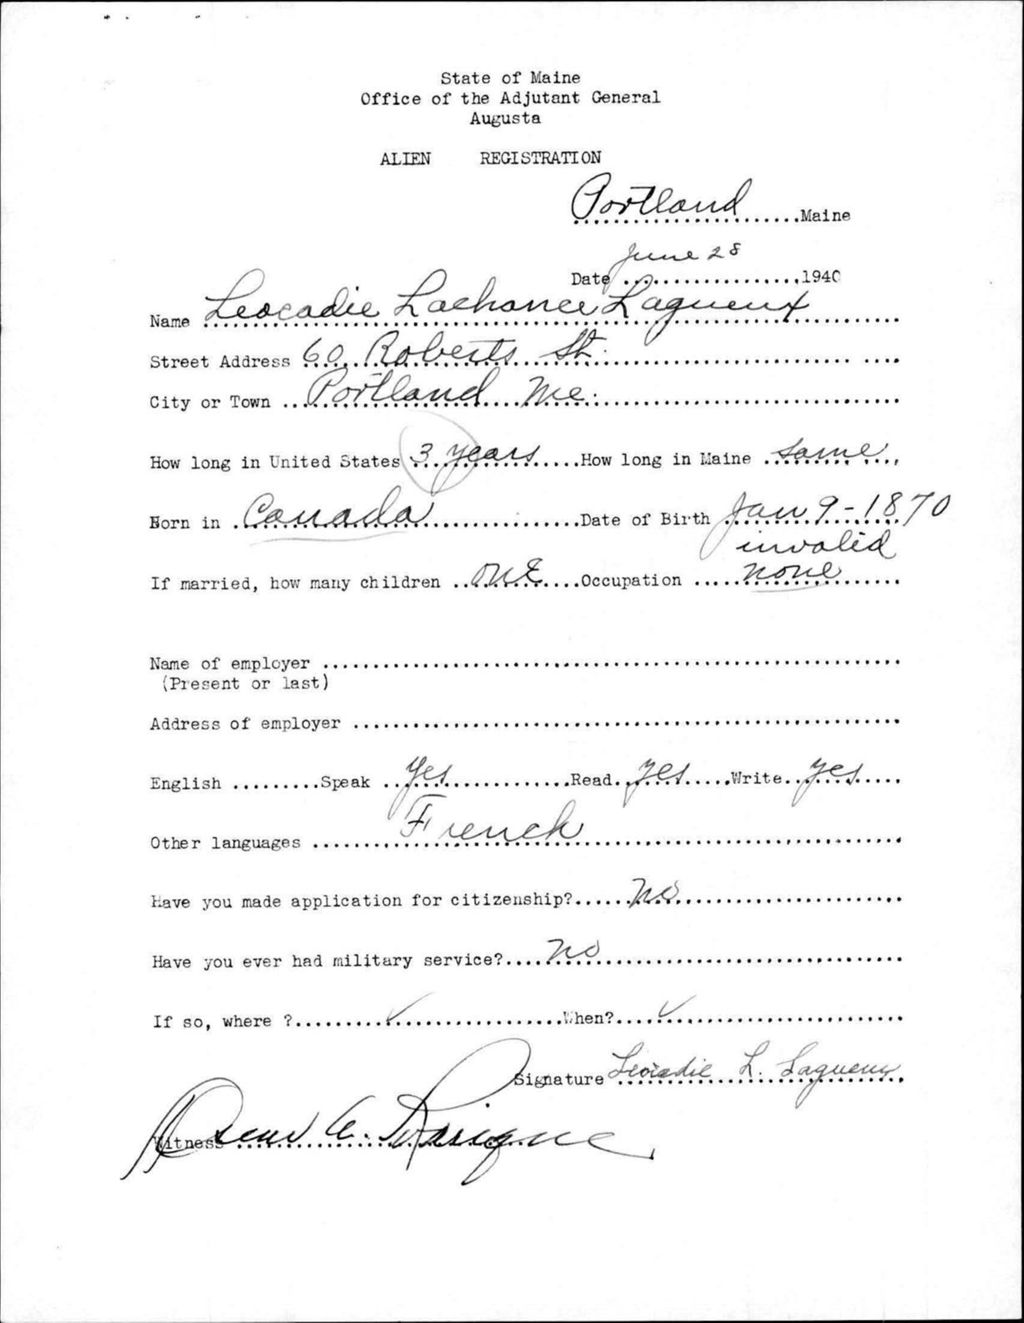 State of Maine
Office of the Adjutant General
Augusta
ALIEN REGISTRATION
Portland Maine
Date June 28, 1940
Name Leocadie Lachance Lagueux
Street Address 60 Roberts St.
City or Town Portland Me.
How long in United States 3 years How long in Maine same
Born in Canada Date of Birth Jan 9-1870
invalid
If married, how many children one Occupation none
Name of employer
(Present or last)
Address of employer
English Speak Yes Read yes Write yes
Other languages French
Have you made application for citizenship? No
Have you ever had military service? No
If so, where ? ✓ When? ✓
Signature Leocadie L. Lagueux
Witness